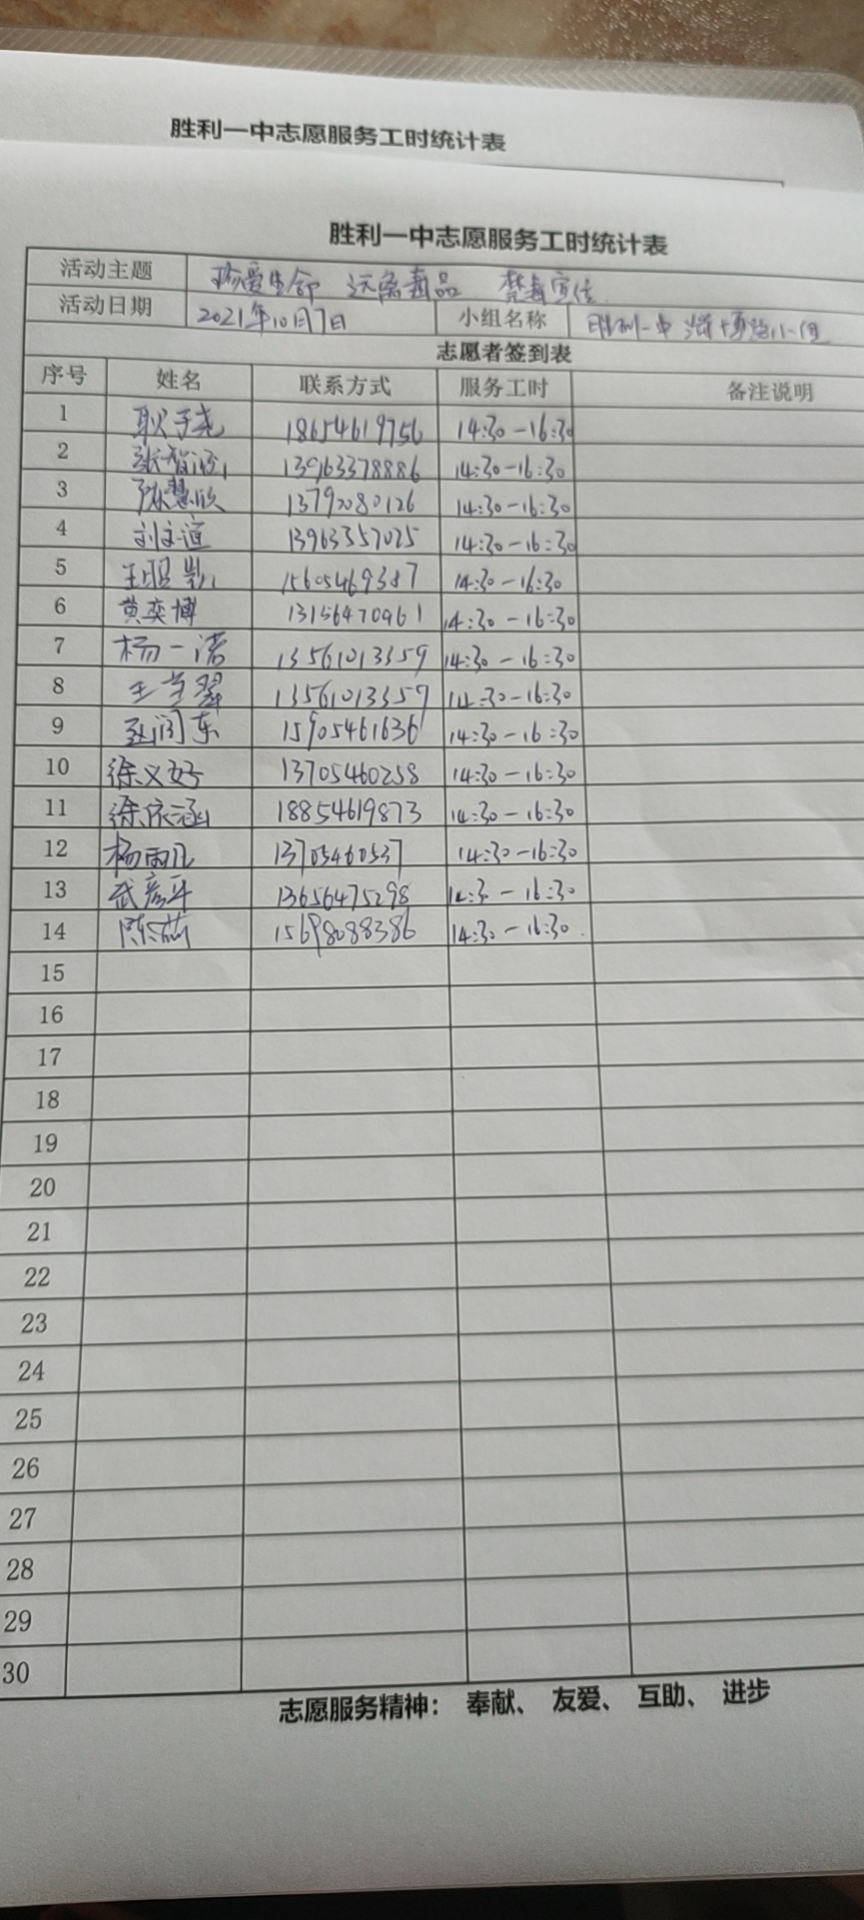 胜利一中志愿服务工时统计表
胜利一中志愿服务工时统计表
活动主题 珍爱生命 远离毒品 禁毒宣传
活动日期 2021年10月7日 小组名称 胜利一中
志愿者签到表
序号 姓名 联系方式 服务工时 备注说明
1 耿子尧 18654619756 14:30-16:30
2 13963378886 14:30-16:30
3 张慧欣 13792080126 14:30-16:30
4 刘文谊 13963357025 14:30-16:30
5 15605469387 14:30-16:30
6 黄奕博 13156470961 14:30-16:30
7 杨一诺 13561013359 14:30-16:30
8 13561013359 14:30-16:30
9 15905461636 14:30-16:30
10 徐义好 13705460258 14:30-16:30
11 徐依涵 18854619873 14:30-16:30
12 杨雨凡 13705460537 14:30-16:30
13 武彦平 13656475298 14:3 - 16:30
14 陈茹 15698088386 14:30-16:30
15
16
17
18
19
20
21
22
23
24
25
26
27
28
29
30
志愿服务精神： 奉献、 友爱、 互助、 进步